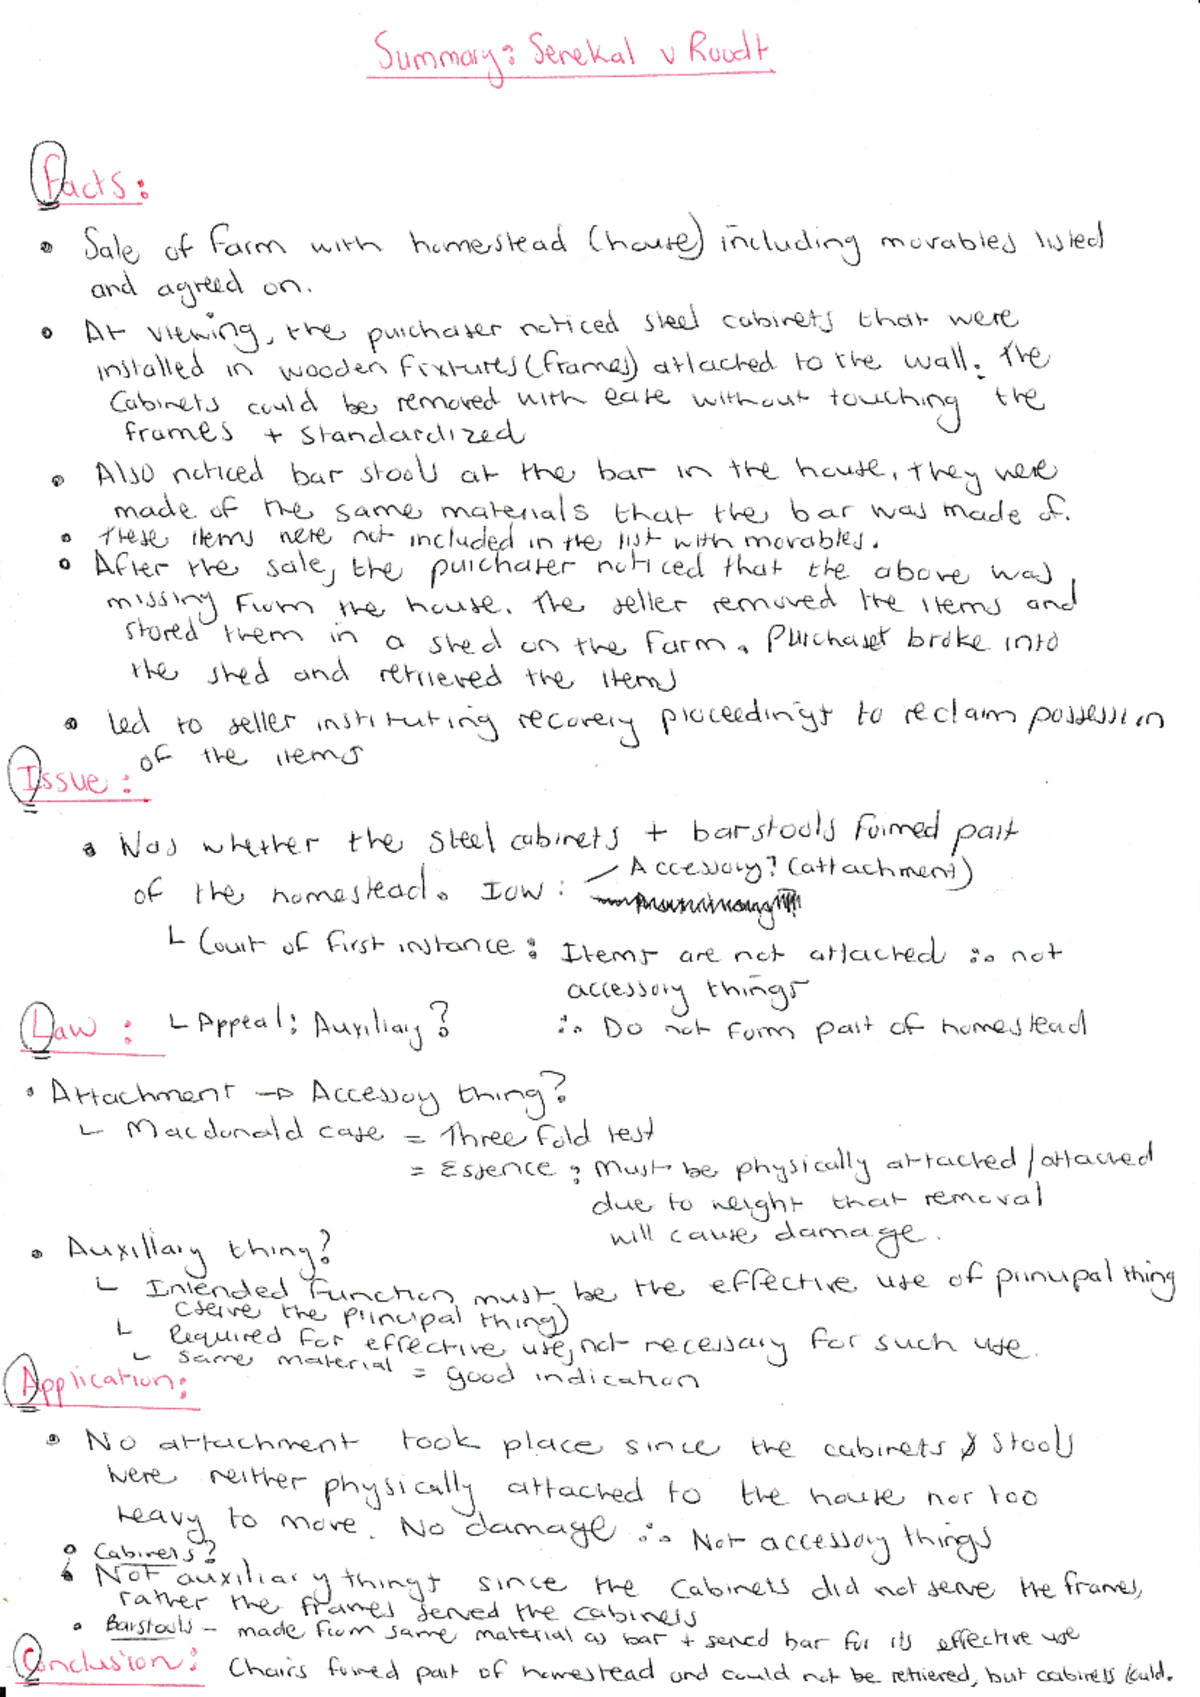 Summary: Serekal v Roodt
Facts:
• Sale of farm with homestead (house) including movables listed
and agreed on.
• At viewing, the purchaser noticed steel cabinets that were
installed in wooden fixtures (frames) attached to the wall. The
Cabinets could be removed with ease without touching the
frames + standardized
• Also noticed bar stools at the bar in the house, they were
made of the same materials that the bar was made of.
• These items were not included in the list with movables.
• After the sale, the purchaser noticed that the above was
missing from the house. The seller removed the items and
stored them in a shed on the farm. Purchaset broke into
the shed and retrieved the items
• led to seller instituting recovery proceedings to reclaim possession
of the items
Issue:
• Was whether the steel cabinets + barstools formed part
of the homestead. IOW: - Accessory? (attachment)
└ Court of first instance: Items are not attached ∴ not
accessory things
Law: └ Appeal: Auxiliary? ∴ Do not form part of homestead
• Attachment → Accessoy thing?
└ Macdonald case = Three fold test
= Essence: Must be physically attached/attached
due to weight that removal
will cause damage.
• Auxillary thing?
└ Intended function must be the effective use of principal thing
(serve the principal thing)
└ Required for effective use, not necessary for such use.
└ same material = good indication
Application:
• No attachment took place since the cabinets & stools
were neither physically attached to the house nor too
heavy to move. No damage ∴ Not accessory things
• Cabinets?
• Not auxiliary things since the cabinets did not serve the frames,
rather the frames served the cabinets
• Barstools - made from same material as bar + served bar for its effective use
Conclusion: Chairs formed part of homestead and could not be retrieved, but cabinets could.